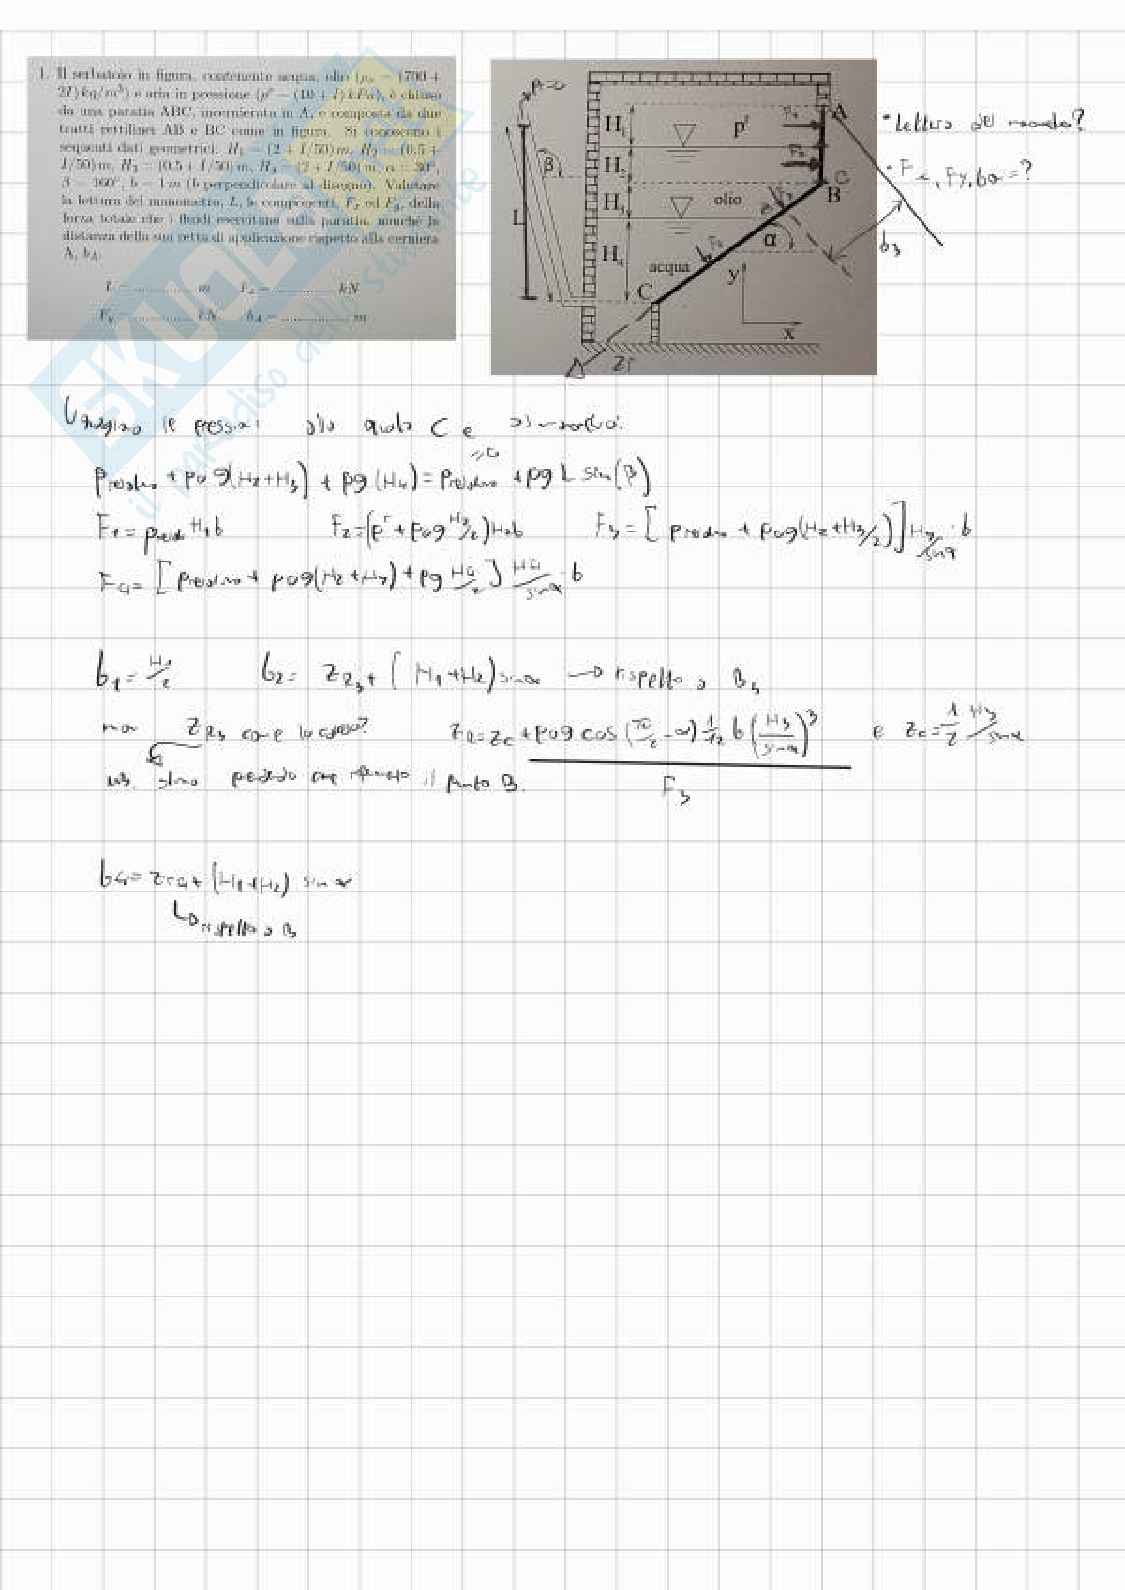 1. Il serbatoio in figura, contenente acqua, olio (ρₒ = (700 +
2I) kg/m³) e aria in pressione (pʳ = (10 + I) kPa), è chiuso
da una paratia ABC, incernierata in A, e composta da due
tratti rettilinei AB e BC come in figura. Si conoscono i
seguenti dati geometrici, H₁ = (2 + I/50) m, H₂ = (0.5 +
I/50) m, H₃ = (0.5 + I/50) m, H₄ = (2 + I/50) m, α = 30°,
β = 160°, b = 1 m (b perpendicolare al disegno). Valutare
la lettura del manometro, L, le componenti, Fₓ ed Fᵧ, della
forza totale che i fluidi esercitano sulla paratia, nonché la
distanza della sua retta di applicazione rispetto alla cerniera
A, b_A.
L = ............... m Fₓ = ............... kN
Fᵧ = ............... kN b_A = ............... m
SKUOLA
il paradiso dello studente
P=0
L
β
H₁
H₂
H₃
H₄
pʳ
olio
acqua
A
C
B
α
C
y
x
b₃
• Lettura del
• Fₓ, Fy, ba = ?
le pressioni alla quota C e
+ ρo g(H₂+H₃) + ρg (H₄) = + ρg L sin(β)
F₁ = H₁ b F₂ = (pʳ + ρo g H₂/2) H₂ b F₃ = [ + ρo g (H₂+H₃/2)] H₃/sinα · b
F₄ = [ + ρo g(H₂+H₃) + ρg H₄/2 ] H₄/sinα · b
b₁ = H₁/2 b₂ = z_R₃ + (H₁+H₂) sinα → rispetto a B₃
ma z_R₃ come lo calcolo? z_R = z_c + ρo g cos(π/2 - α) 1/12 b (H₃/sinα)³ / F₃ e z_c = 1/2 H₃/sinα
NB. stiamo prendendo come riferimento il punto B.
b₄ = z_R₄ + (H₁+H₂) sinα
↳ rispetto a B